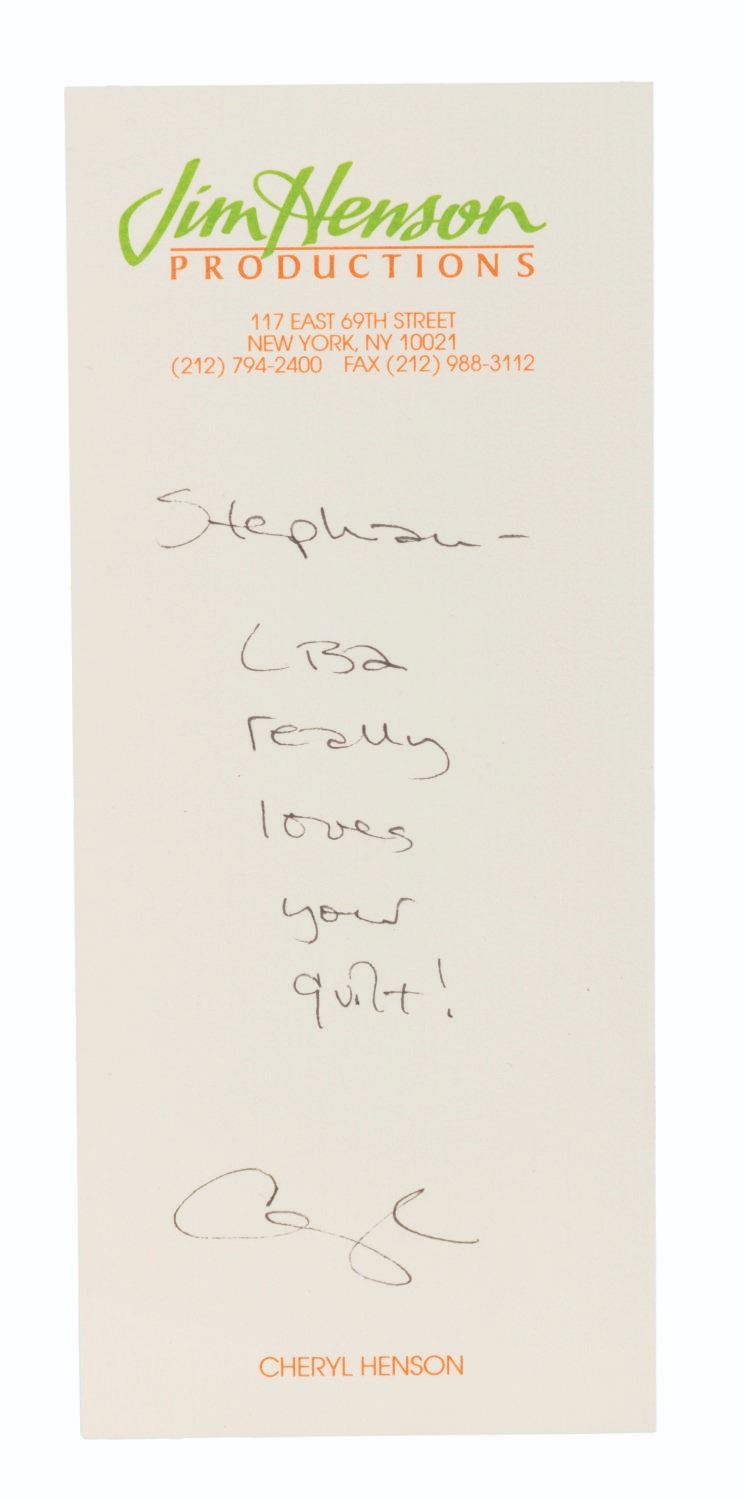 Jim Henson
PRODUCTIONS
117 EAST 69TH STREET
NEW YORK, NY 10021
(212) 794-2400 FAX (212) 988-3112
Stephan -
LBJ
really
loves
your
quilt!
Cheryl
CHERYL HENSON